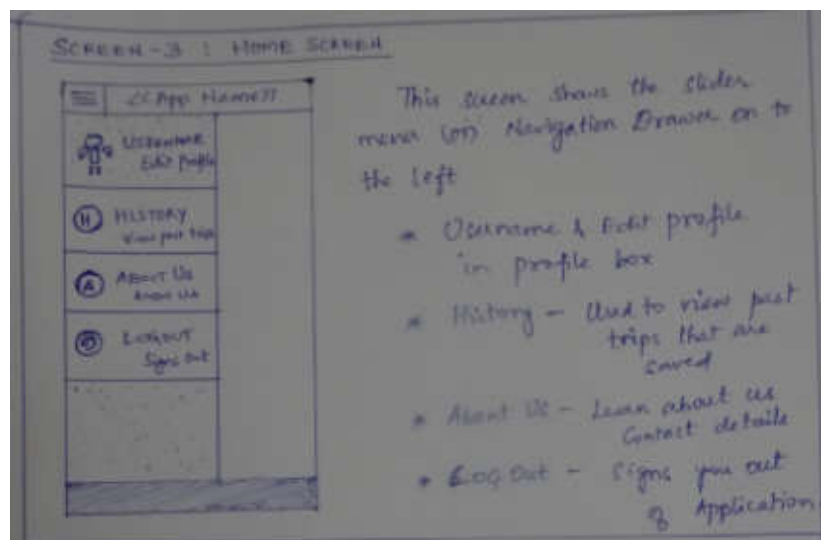 SCREEN-3 : HOME SCREEN
<<App Name>>
USERNAME
Edit Profile
H HISTORY
View past trips
A ABOUT US
LOGOUT
Signs Out
This screen shows the slider
menu (or) Navigation Drawer on to
the left
* Username & Edit profile
in profile box
* History - Used to view past
trips that are
saved
* About Us - Learn about us
Contact details
* Log Out - Signs you out
of Application